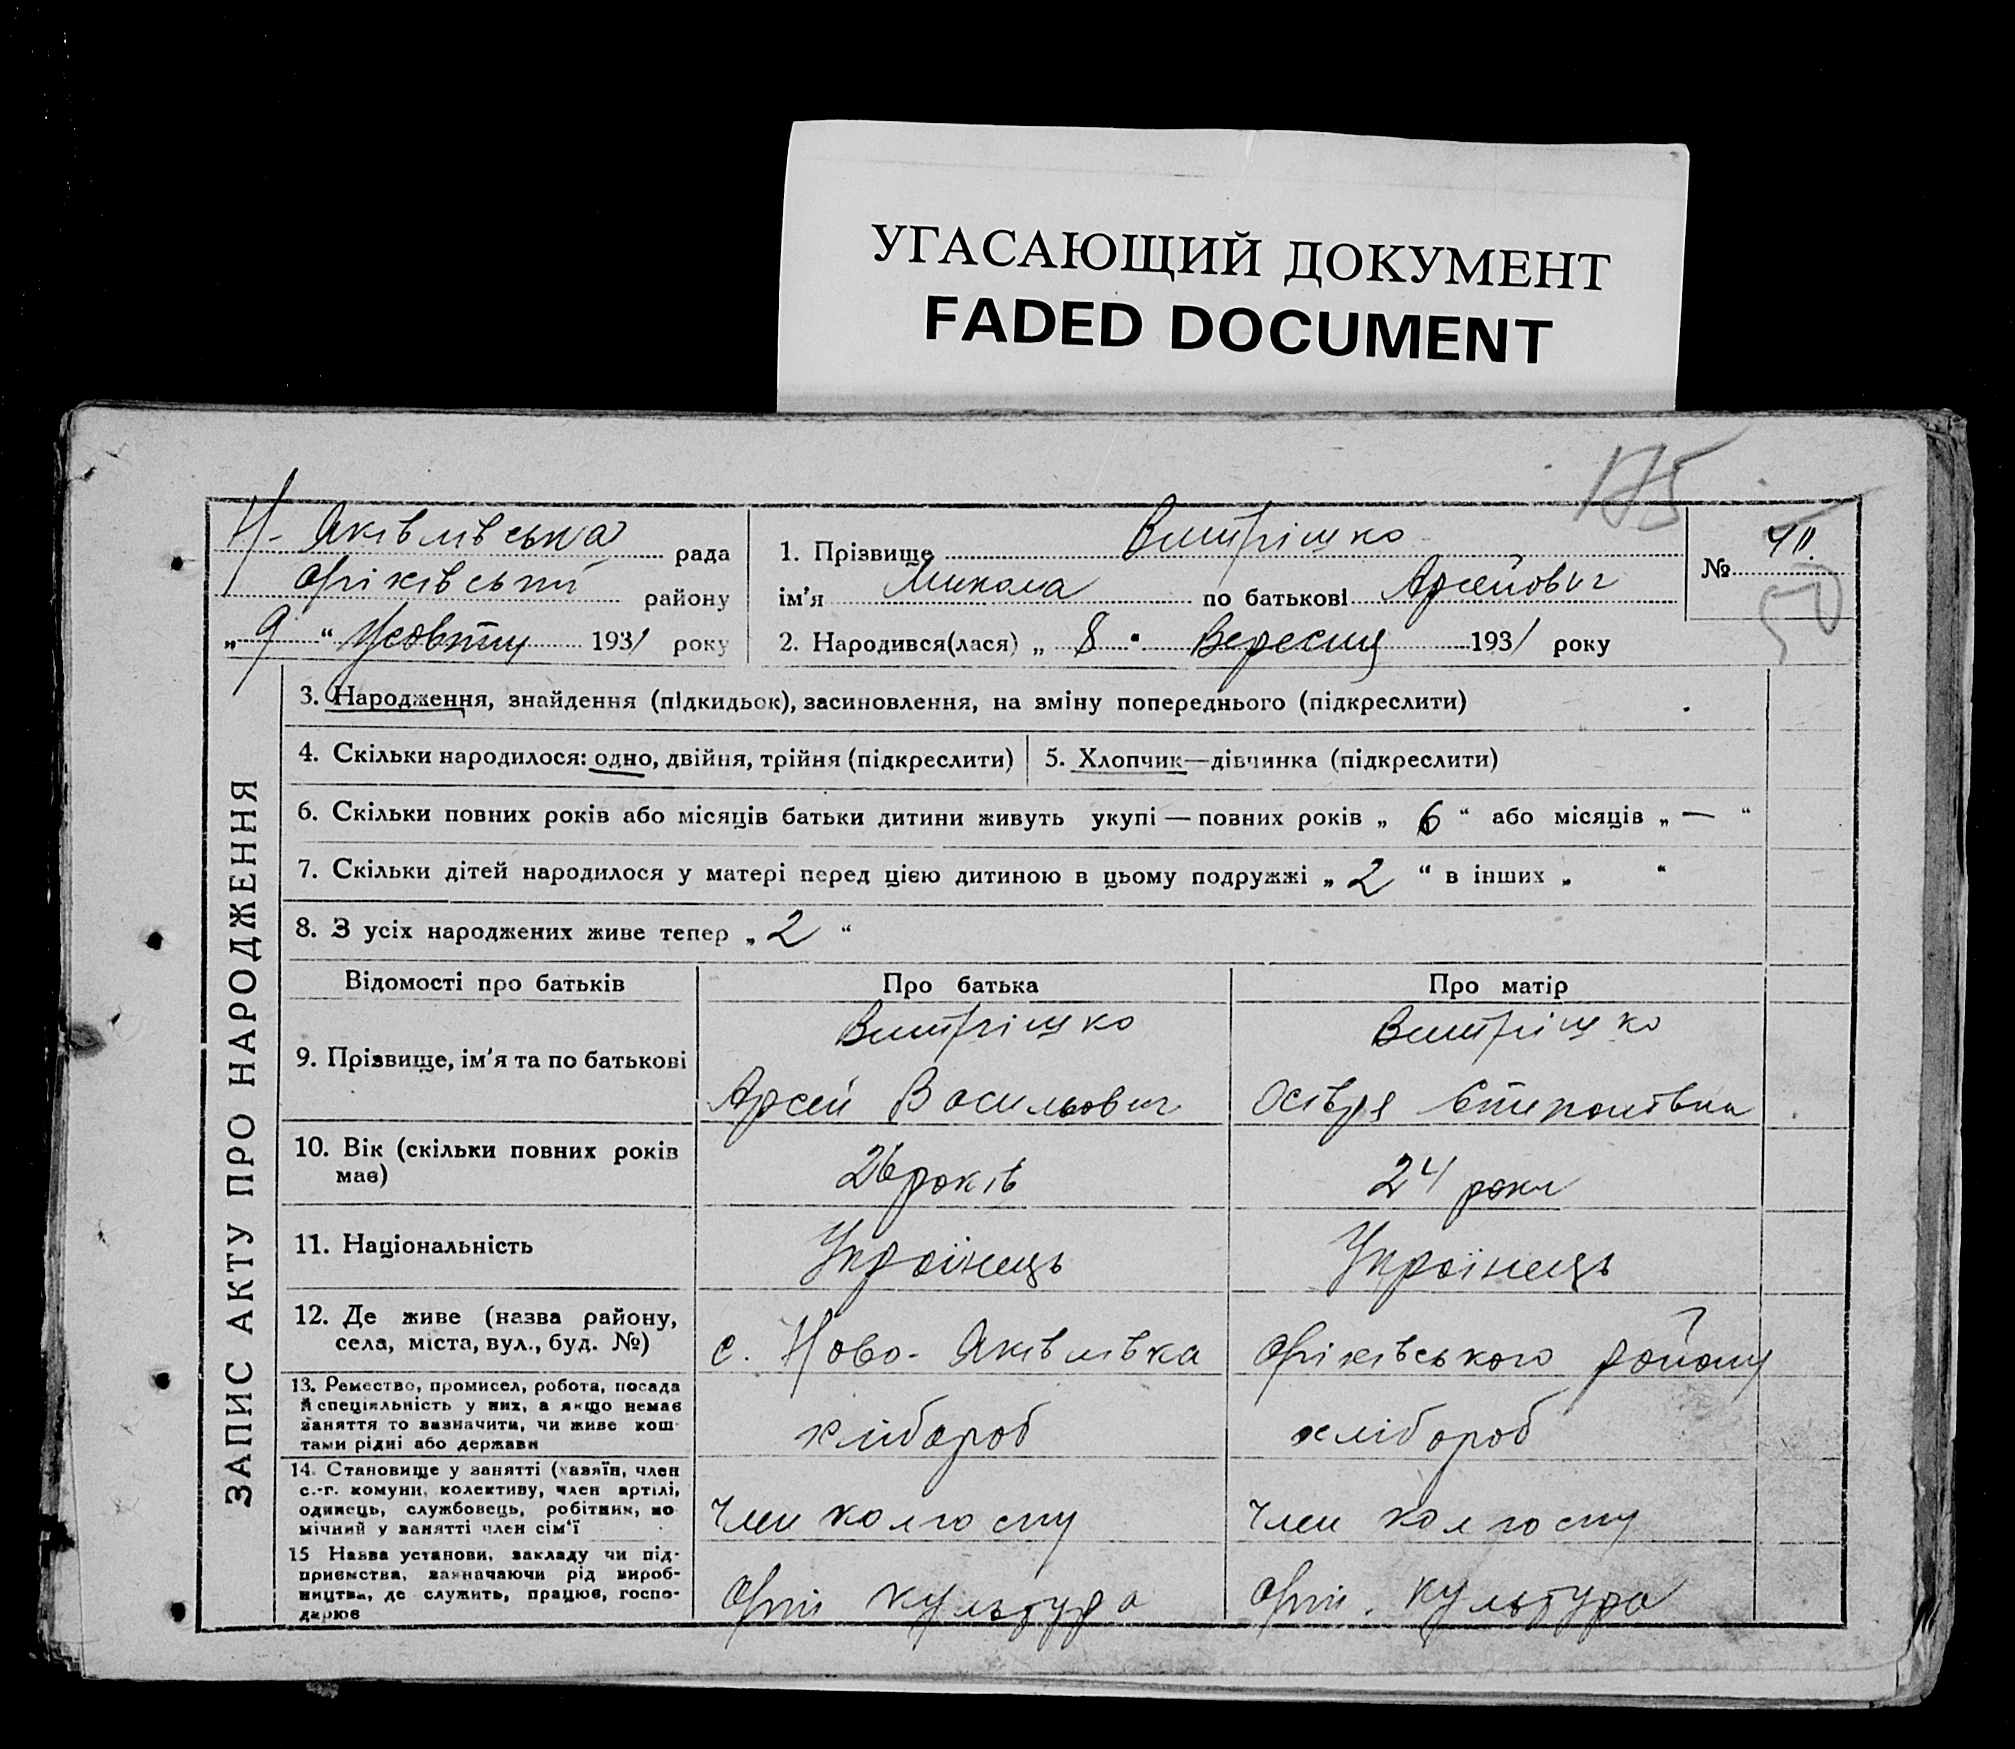 УГАСАЮЩИЙ ДОКУМЕНТ
FADED DOCUMENT
175
Н-Яківлівська рада
Оріхівський району
„9“ Жовтня 1931 року
1. Прізвище Витрішко
ім'я Микола по батькові Арсейович
2. Народився(лася) „8" Вересня 1931 року
№
50
ЗАПИС АКТУ ПРО НАРОДЖЕННЯ
3. Народження, знайдення (підкидьок), засиновлення, на зміну попереднього (підкреслити)
4. Скільки народилося: одно, двійня, трійня (підкреслити)
5. Хлопчик—дівчинка (підкреслити)
6. Скільки повних років або місяців батьки дитини живуть укупі — повних років „6“ або місяців „—“
7. Скільки дітей народилося у матері перед цією дитиною в цьому подружжі „2“ в інших „ “
8. З усіх народжених живе тепер „2“
Відомості про батьків Про батька Про матір
9. Прізвище, ім'я та по батькові
Витрішко
Арсей Васильович
Витрішко
10. Вік (скільки повних років
має)
26 років
24 роки
11. Національність
Українець
Українець
12. Де живе (назва району,
села, міста, вул., буд. №)
с. Ново-Яківлівка
Оріхівського району
13. Ремество, промисел, робота, посада
й спеціяльність у них, а якщо немає
заняття то зазначити, чи живе кош-
тами рідні або держави
хлібороб
хлібороб
14. Становище у занятті (хазяїн, член
с.-г. комуни, колективу, член артілі,
одинець, службовець, робітник, по-
мічний у занятті член сім'ї
Член колгоспу
Член колгоспу
15 Назва установи, закладу чи під-
приємства, зазначаючи рід вироб-
ництва, де служить, працює, госпо-
дарює
культура
культура